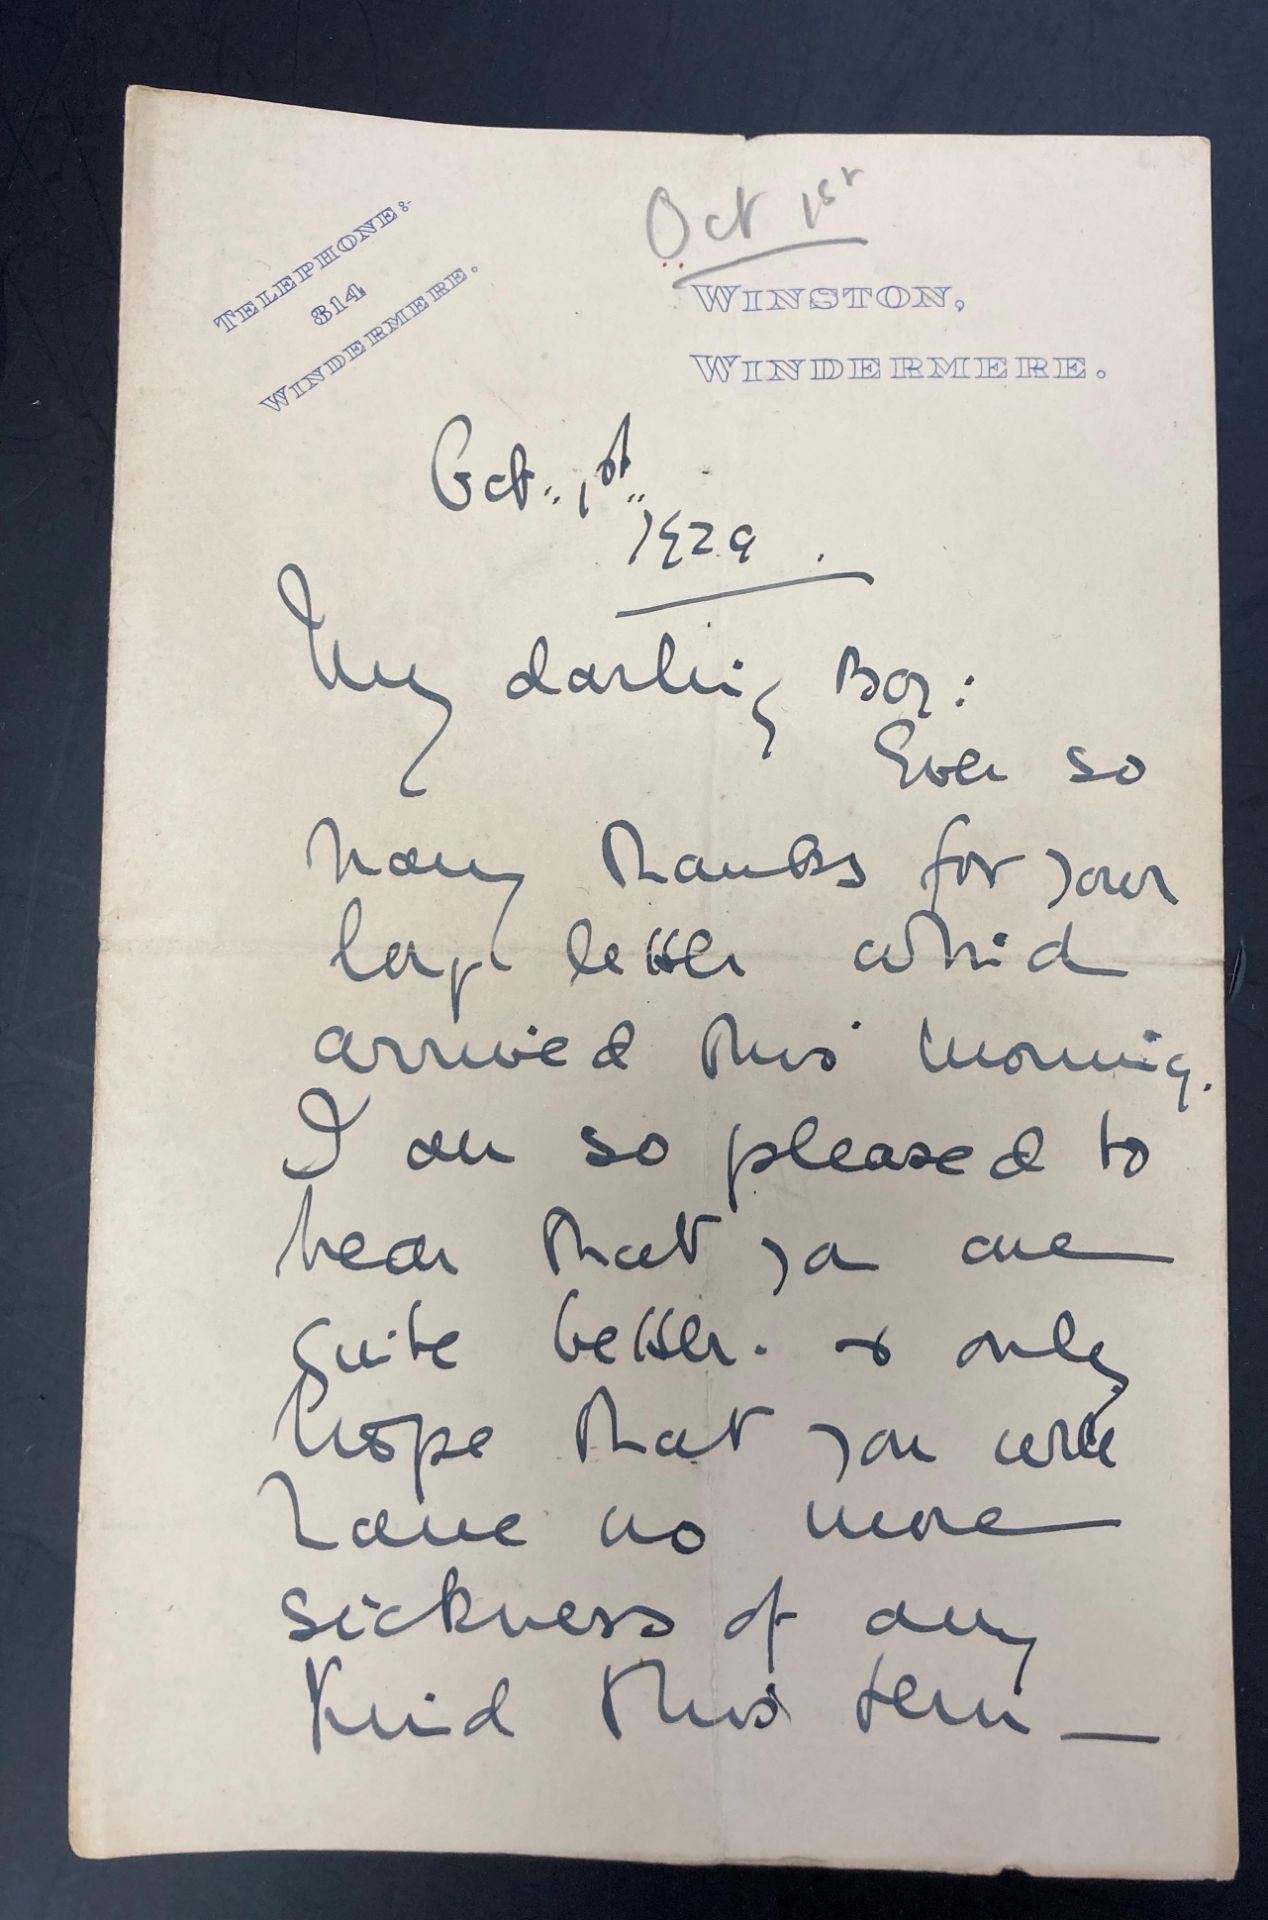 Oct 1st
TELEPHONE:-
314
WINDERMERE.
WINSTON,
WINDERMERE.
Oct. 1st
1929.
My darling Boy:
Ever so
many thanks for your
letter which
arrived this morning.
I am so pleased to
hear that you are
quite better. & only
hope that you will
have no more
sickness of any
kind this term —